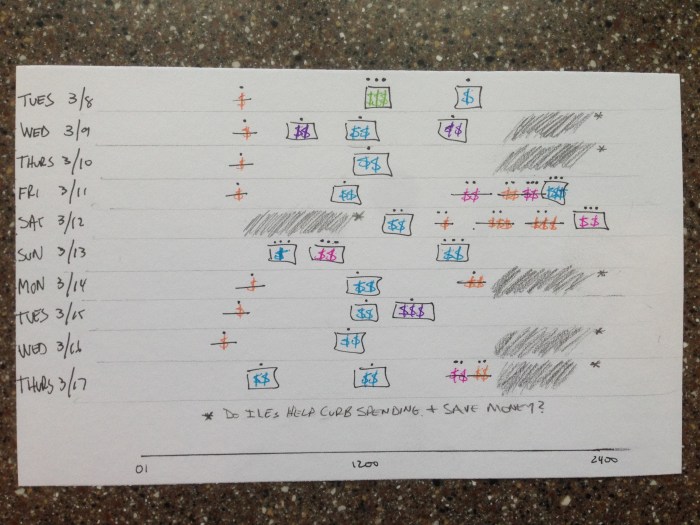 TUES 3/8 $ $$$ $
WED 3/9 $ $$ $$ $$ *
THURS 3/10 $ $$ *
FRI 3/11 $ $$ $$ $$ $$ $$
SAT 3/12 * $$ $ $$ $$$ $$
SUN 3/13 $ $$ $$
MON 3/14 $ $$ $$ *
TUES 3/15 $ $$ $$$
WED 3/16 $ $$ *
THURS 3/17 $$ $$ $$ $$ *
* DO ILES HELP CURB SPENDING + SAVE MONEY?
01 1200 2400